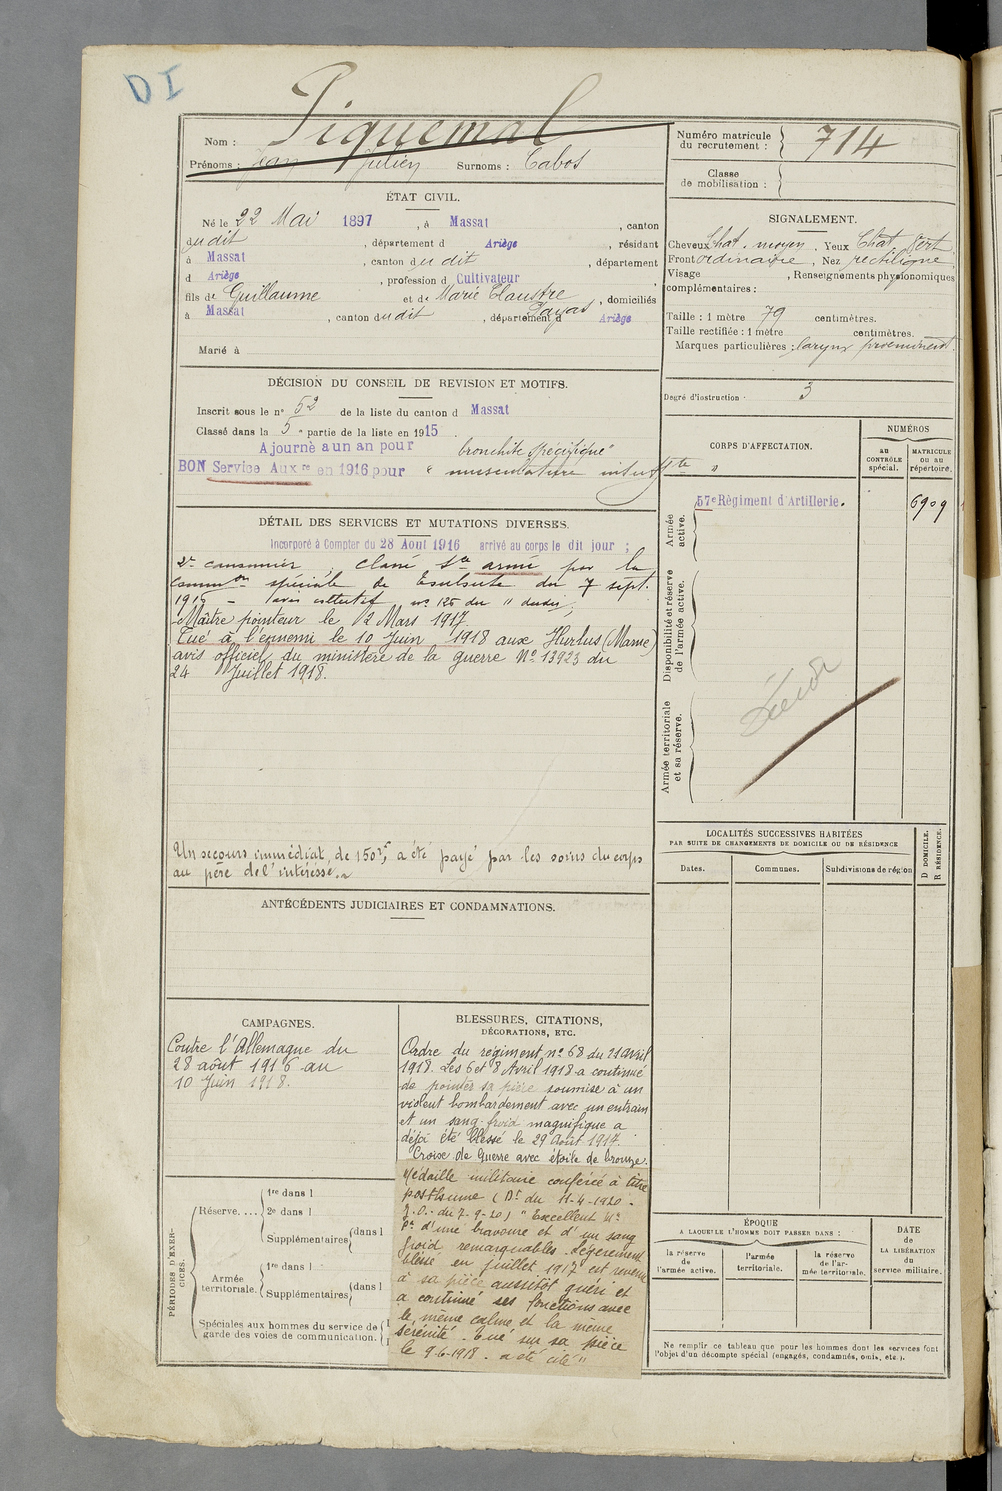 DI
Nom : Piquemal
Prénoms : Jean Julien Surnoms : Cabos
Numéro matricule du recrutement : 714
Classe de mobilisation :
ÉTAT CIVIL.
Né le 22 Mai 1897, à Massat, canton
dudit, département d Ariège, résidant
à Massat, canton dudit, département
d Ariège, profession d Cultivateur
fils de Guillaume et de Marie Claustre Fayas, domiciliés
à Massat, canton dudit, département d Ariège
Marié à
SIGNALEMENT.
Cheveux Chat. moyen. Yeux Chat Vert
Front ordinaire, Nez rectiligne
Visage , Renseignements physionomiques
complémentaires :
Taille : 1 mètre 79 centimètres.
Taille rectifiée : 1 mètre centimètres.
Marques particulières : larynx proeminent.
Degré d'instruction. 3
DÉCISION DU CONSEIL DE REVISION ET MOTIFS.
Inscrit sous le n° 52 de la liste du canton d Massat
Classé dans la 5e partie de la liste en 1915.
Ajourné a un an pour bronchite spécifique"
BON Service Auxre en 1916 pour " musculature insuffte "
DÉTAIL DES SERVICES ET MUTATIONS DIVERSES.
Incorporé à Compter du 28 Aout 1916 arrivé au corps le dit jour ;
2e canonnier, Classé sce armé par la
Common spéciale de du 7 sept.
1916 - avis n° 125 du " dudit.
Maître pointeur le 12 Mars 1917.
Tué à l'ennemi le 10 Juin 1918 aux Hurlus (Marne)
avis officiel du ministère de la guerre N° 13923 du
24 Juillet 1918.
Un secours immédiat, de 150f, a été payé par les soins du corps
au père de l'intéressé.
CORPS D'AFFECTATION.
NUMÉROS
au CONTRÔLE spécial.
MATRICULE ou au répertoire.
Armée active.
57e Régiment d'Artillerie. 6909
Disponibilité et réserve de l'armée active.
Armée territoriale et sa réserve.
LOCALITÉS SUCCESSIVES HABITÉES
PAR SUITE DE CHANGEMENTS DE DOMICILE OU DE RÉSIDENCE
Dates. Communes. Subdivisions de région
D DOMICILE. R RÉSIDENCE.
ANTÉCÉDENTS JUDICIAIRES ET CONDAMNATIONS.
CAMPAGNES.
Contre l'Allemagne du
28 août 1916 au
10 Juin 1918.
BLESSURES, CITATIONS,
DÉCORATIONS, ETC.
Ordre du régiment n° 68 du 21 avril
1918. Les 6 et 8 Avril 1918 a continué
de pointer sa pièce soumise à un
violent bombardement avec un entrain
et un sang-froid magnifique a
déjà été blessé le 29 Août 1917.
Croix de Guerre avec étoile de bronze.
Médaille militaire conféré à titre
posthume (Dt du 11-4-1920.
J.O. du 7-9-20) " Excellent Me
Pr d'une bravoure et d'un sang
froid remarquables. Légèrement
blessé en juillet 1917 est revenu
à sa pièce aussitôt guéri et
a continué ses fonctions avec
le même calme et la même
sérénité. Tué sur sa pièce
le 9-6-1918. a été cité"
PÉRIODES D'EXERCICES.
Réserve....
1re dans l
2e dans l
Supplémentaires dans l
Armée territoriale.
1re dans l
Supplémentaires dans l
Spéciales aux hommes du service de
garde des voies de communication.
ÉPOQUE
A LAQUELLE L'HOMME DOIT PASSER DANS :
la réserve de l'armée active.
l'armée territoriale.
la réserve de l'armée territoriale.
DATE de LA LIBÉRATION du service militaire.
Ne remplir ce tableau que pour les hommes dont les services font
l'objet d'un décompte spécial (engagés, condamnés, omis, etc.).